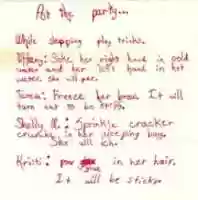 At the party...
While sleeping play tricks.
Tiffany: Stick her right hand in cold
water and her left hand in hot
water. She will pee.
Freeze her bra. It will
turn out to be stiff.
Shelly M.: Sprinkle cracker
crumbs in her sleeping bag.
She will itch.
Kristi: pour in her hair.
It will be sticky.